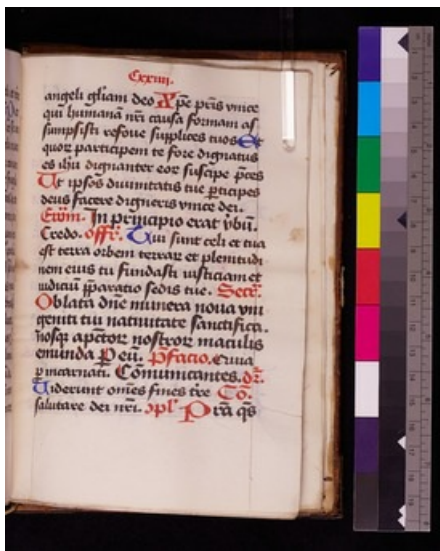 Cxxiiii.
angeli gliam deo Xpe pris vnice
qui humanā nri causa formam as
sumpsisti resoue supplices tuos Et
quoȝ participem te fore dignatus
es ihū dignanter eoȝ suscipe pces
Ut ipsos diuinitatis tue pticipes
deus facere digneris vnice dei.
Ewm. In principio erat vbū.
Credo. offr̄. Tui sunt celi et tua
est terra orbem terraȝ et plenitudi
nem eius tu fundasti iusticiam et
iudiciū pparatio sedis tue. Secr̄.
Oblata dne munera noua vni
geniti tui natiuitate sanctifica.
nosqȝ a pctoȝ nostroȝ maculis
emunda P eū. Pfacio. Quia
p incarnati. Cōmunicantes. cō.
Viderunt omēs fines tre Cō.
salutare dei nri. cpl' Pra qs